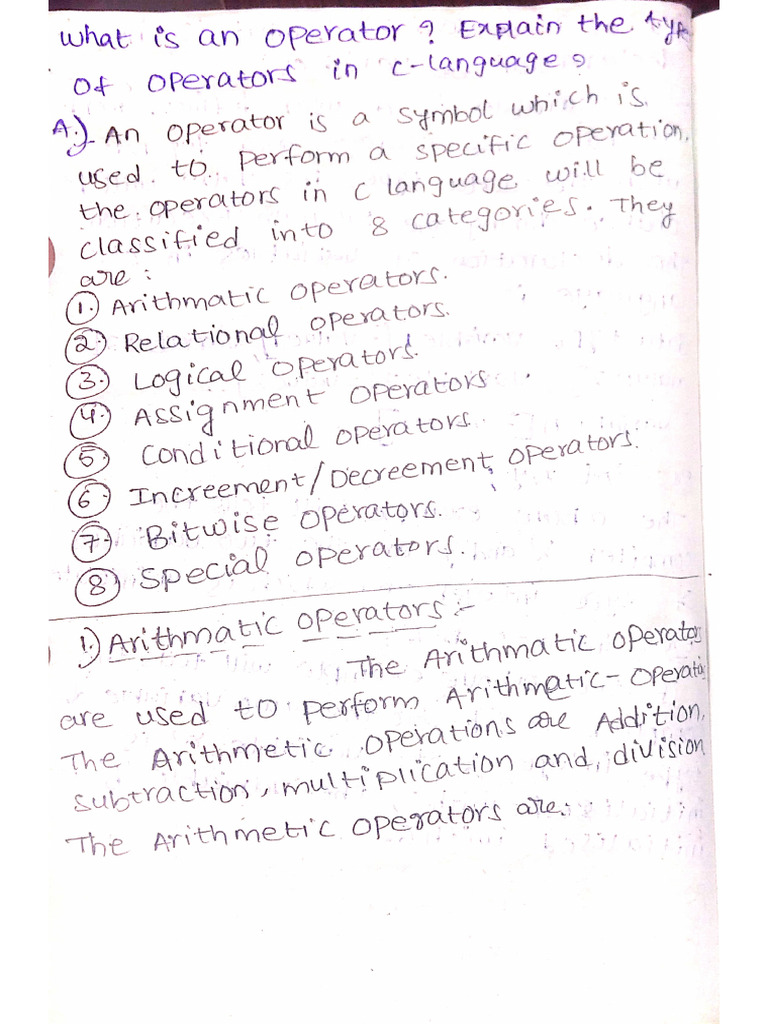 What is an operator? Explain the type
of operators in c-language?
A.) An operator is a symbol which is
used to perform a specific operation,
the operators in c language will be
classified into 8 categories. They
are:
1. Arithmatic operators.
2. Relational operators.
3. Logical operators.
4. Assignment operators.
5. Conditional operators.
6. Increement/Decreement operators.
7. Bitwise operators.
8. Special operators.
1.) Arithmatic operators:-
The Arithmatic operator
are used to perform Arithmetic-operati
The Arithmetic operations are Addition,
subtraction, multiplication and, division
The Arithmetic operators are: